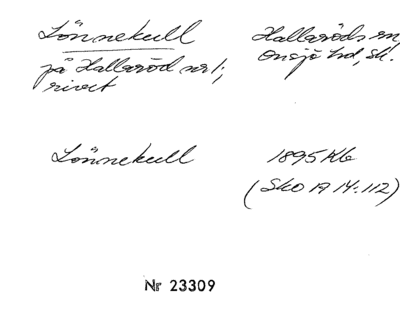 Lönnekull
på Hallaröd nr 1;
rivet
Hallaröds sn
Onsjö hd, Sk.
Lönnekull
1895 Kb
(Sko 19 14:112)
Nr 23309